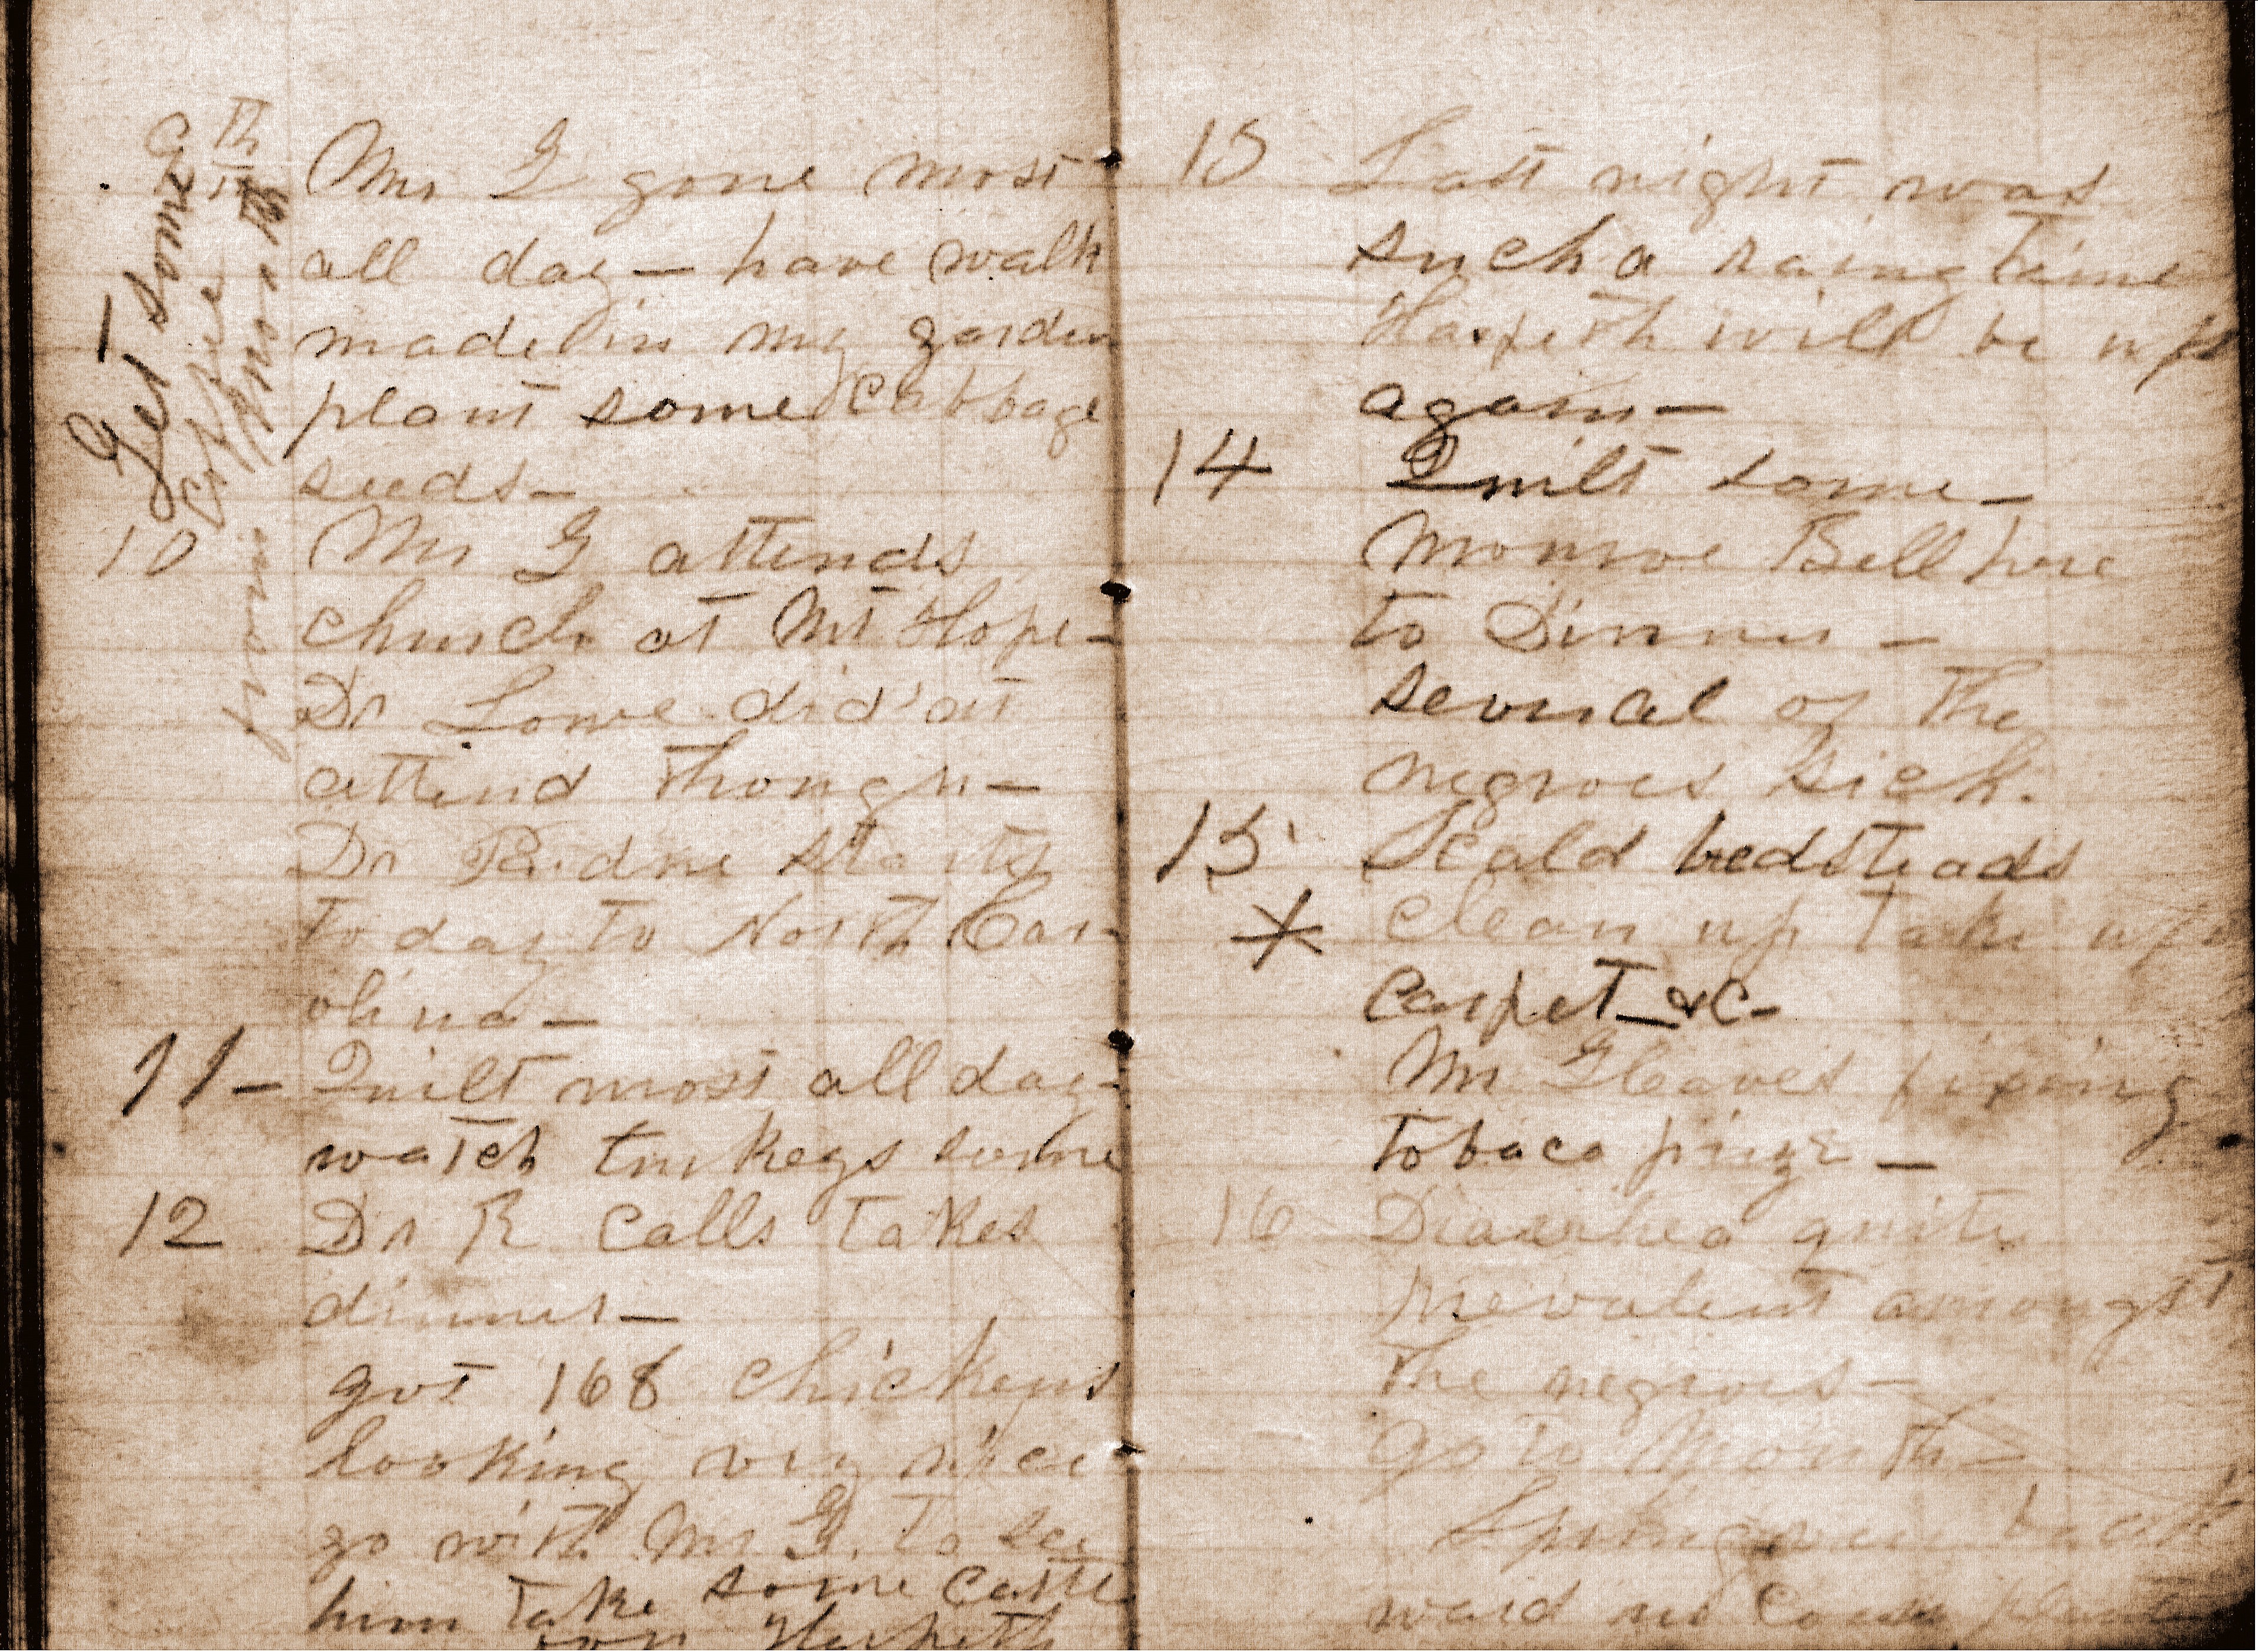 9th
Mr G gone most
all day — have walk
made in my garden
plant some Cabbage
seeds —
Get some
coffee
from
10 Mr G attends
church at Mt Hope —
Dr Lowe did'nt
attend though —
Dr starts
to day to North Car-
olina —
11 — Quilt most all day —
watch turkeys some
12 Dr R calls takes
dinner —
got 168 chickens
looking very nice
go with Mr G. to see
him take some cattle
Harpeth
13 Last night was
such a rainy time
Harpeth will be up
again —
14 Quilt some —
Monroe Bell here
to Dinner —
several of the
negroes sick.
15 Scald bedsteads
* clean up take up
carpet — &c —
Mr Gleaves fixing
tobaco prize —
16 Diarrhea quite
prevalent amongst
the negroes —
go to Month —
Spring back
ward no Corn